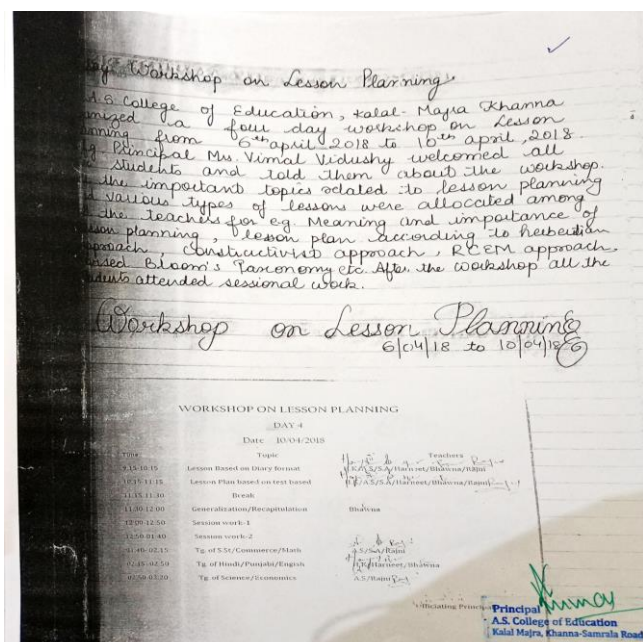 Workshop on Lesson Planning.
A.S. College of Education, Kalal-Majra Khanna
a four day workshop on Lesson
from 6th april 2018 to 10th april, 2018.
Principal Ms. Vimal Vidushy welcomed all
students and told them about the workshop.
the important topics related to lesson planning
various types of lessons were allocated among
the teachers for e.g. Meaning and importance of
planning, lesson plan according to herbertian
approach, Constructivist approach, RCEM approach,
Bloom's Taxonomy etc. After the workshop all the
attended sessional work.
Workshop on Lesson Planning
6/04/18 to 10/04/18
WORKSHOP ON LESSON PLANNING
DAY 4
Date 10/04/2018
Time Topic Teachers
9.15-10.15 Lesson Based on Diary format /S.A/Harneet/Bhawna/Rajni
10.15-11.15 Lesson Plan based on test based A.S/S.A/Harneet/Bhawna/Rajni
11.15-11.30 Break
11.30-12.00 Generalization/Recapitulation Bhawna
12.00-12.50 Session work-1
12.50-01.40 Session work-2
01.40-02.15 Tg. of S.St/Commerce/Math A.S/S.A/Rajni
02.15-02.50 Tg. of Hindi/Punjabi/English Harneet/Bhawna
02.50-03.20 Tg. of Science/Economics A.S/Rajni
Officiating Principal
Principal
A.S. College of Education
Kalal Majra, Khanna-Samrala Road